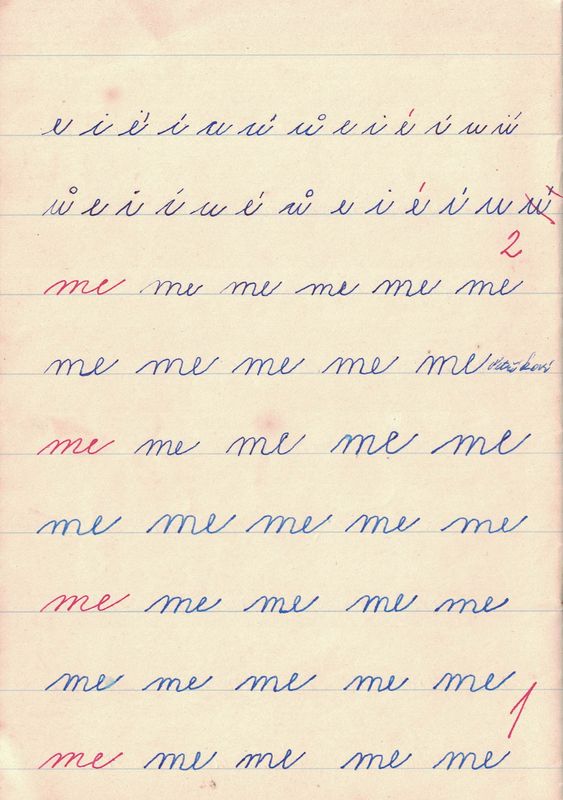 e i é í u ú ů e i é í u ú
ů e i í u é ů e i é í u ú
2
me me me me me me
me me me me me
me me me me me
me me me me me
me me me me me
me me me me me
1
me me me me me